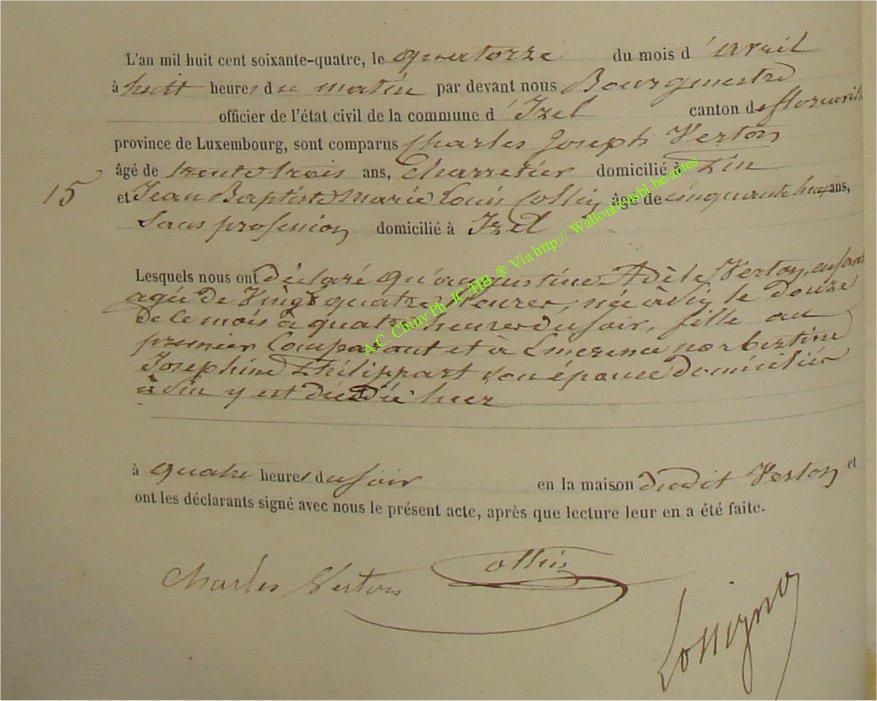 L'an mil huit cent soixante-quatre, le quatorze du mois d'avril
à huit heures du matin par devant nous Bourgmestre
officier de l'état civil de la commune d'Izel canton de florenville
province de Luxembourg, sont comparus Charles Joseph Verton
âgé de trente trois ans, Charretier domicilié à
15 et Jean Baptiste Marie Louis Collin âgé de cinquante ans,
Sans profession domicilié à Izel
Lesquels nous ont déclaré qu'augustine Adèle Verton, enfant
agée de Vingt quatre heures, née le douze
de ce mois à quatre heures du soir, fille au
premier Comparant et à norbertine
Josephine Philippart son épouse domiciliés
à y est hier
à quatre heures du soir en la maison dudit Verton et
ont les déclarants signé avec nous le présent acte, après que lecture leur en a été faite.
Charles Verton Collin
A.C. Chiny Ph. ® Via http://